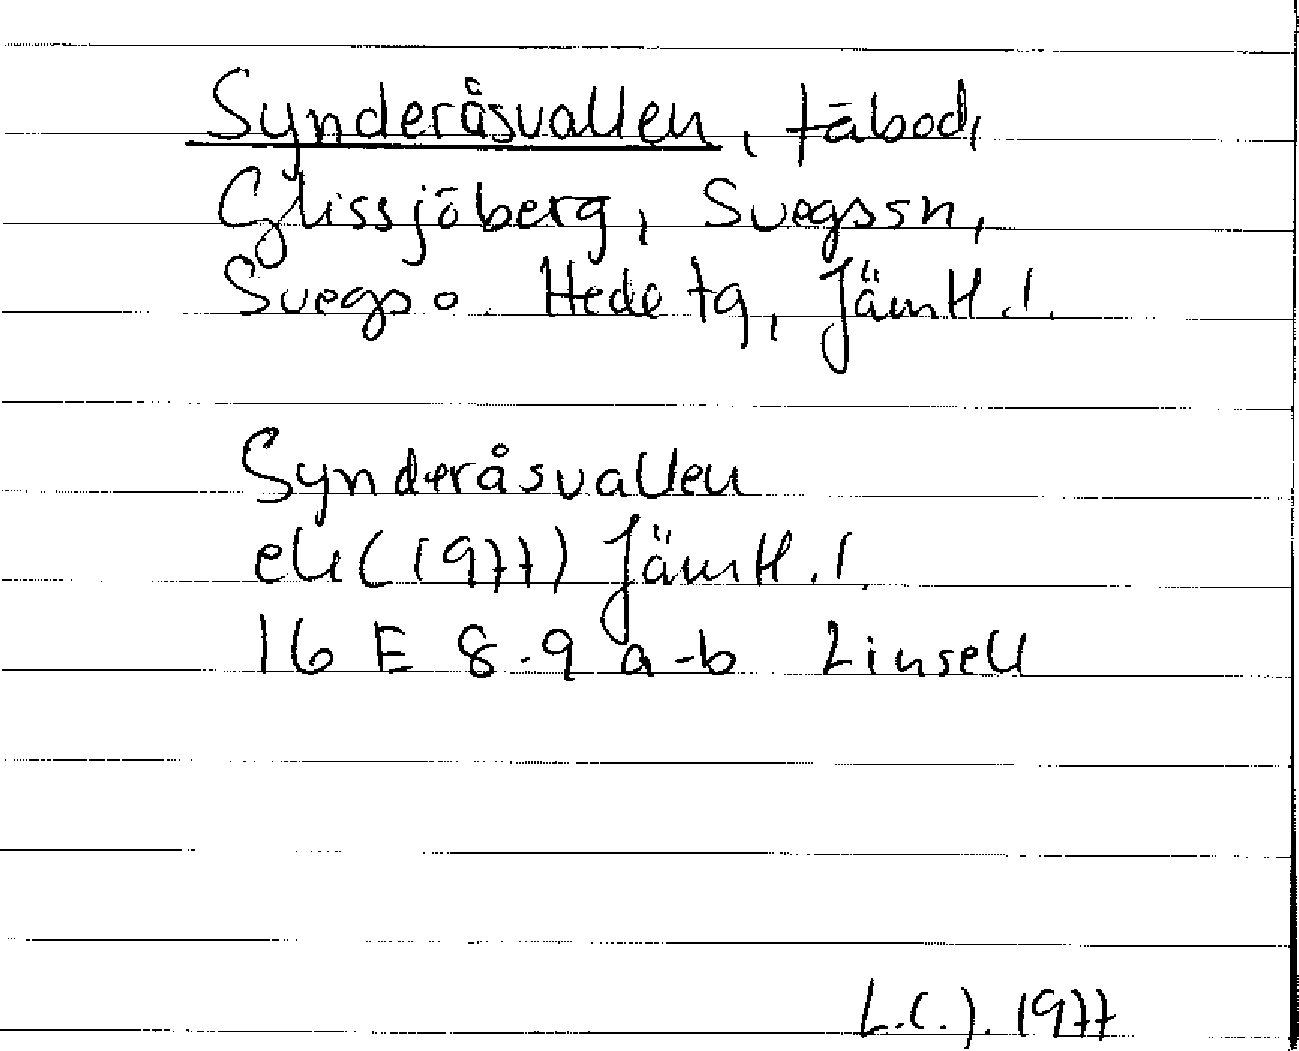 Synderåsvallen, fäbod,
Glissjöberg, Svegs sn,
Svegs o. Hede tg, Jämtl. l.
Synderåsvallen
ek (1977) Jämtl. l.
16 E 8-9 a-b Linsell
1977